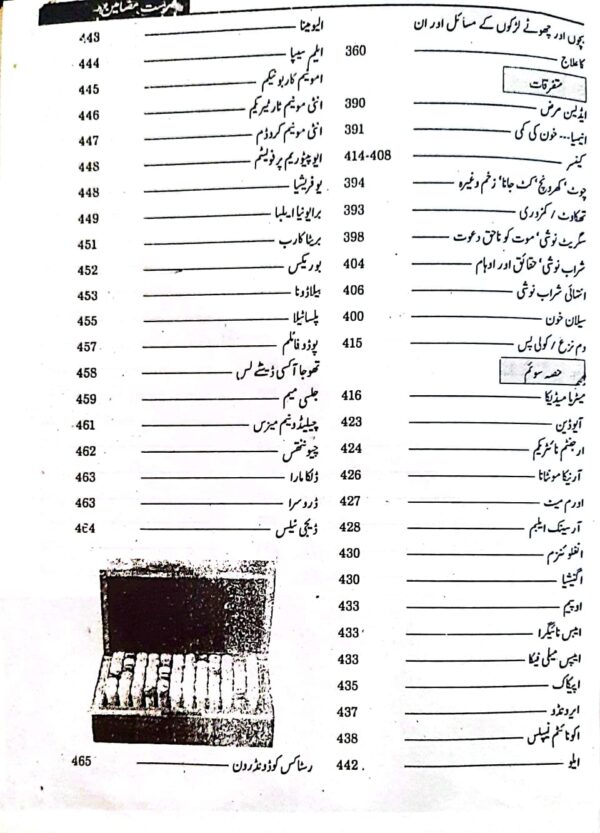 فہرست مضامین
بچوں اور چھوٹے لڑکوں کے مسائل اور ان
کا علاج 360
متفرقات
ایڈیسن مرض 390
انیمیا --- خون کی کمی 391
کینسر 408-414
چوٹ، کھرونچ، کٹ جانا، زخم وغیرہ 394
تھکاوٹ / کمزوری 393
سگریٹ نوشی، موت کو ناحق دعوت 398
شراب نوشی، حقائق اور اوہام 404
انتہائی شراب نوشی 406
سیلان خون 400
دم نزع / کولی پس 415
حصہ سوئم
میٹریا میڈیکا 416
آیوڈین 423
ارجنٹم نائٹریکم 424
آرنیکا مونٹانا 426
اورم میٹ 427
آرسینک ایلبم 428
انفلوئنزم 430
اگنیشیا 430
اوپیم 433
ایپس نائیگرا 433
ایپس میلی فیکا 433
اپیکاک 435
ایرونڈو 437
اکونائٹم نیپلس 438
ایلو 442
الیومینا 443
ایلیم سیپا 444
امونیم کاربونیکم 445
انٹی مونیم ٹارٹیریکم 446
انٹی مونیم کروڈم 447
ایوپیٹوریم پرفولیٹم 448
یوفریشیا 448
برایونیا ایلبا 449
بریٹا کارب 451
بوریکس 452
بیلاڈونا 453
پلساٹیلا 455
پوڈوفائلم 457
تھوجا آکسی ڈینٹے لس 458
جلسی میم 459
چیلیڈونیم میزس 461
چیوننتھس 462
ڈلکامارا 463
ڈروسرا 463
ڈیجی ٹیلس 464
رسٹاکس کوڈونڈرون 465